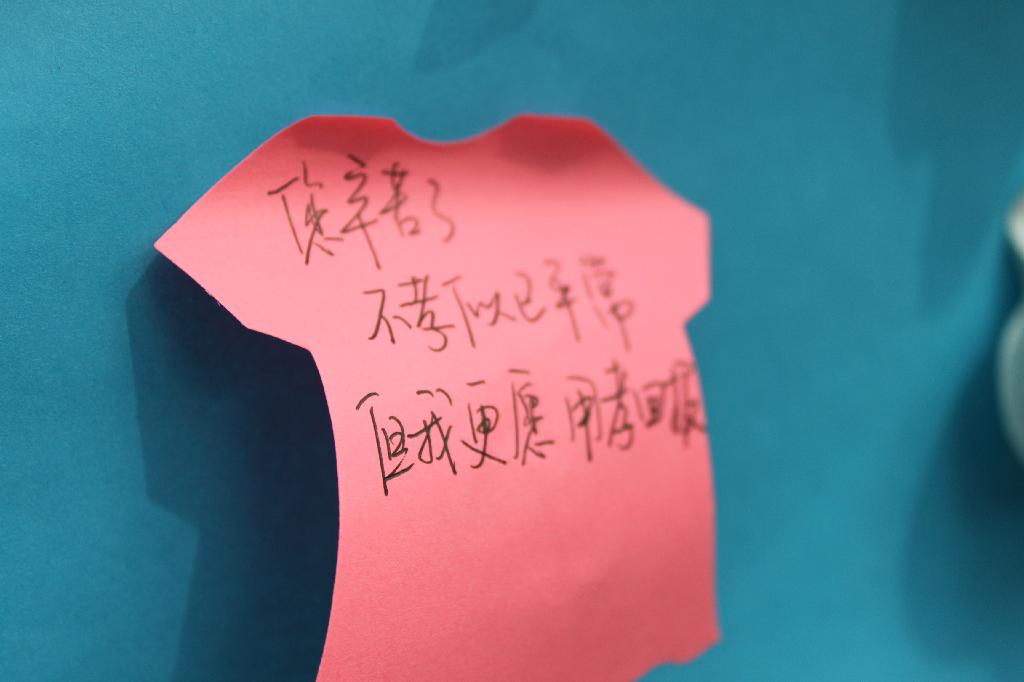 您辛苦了
不孝似已平常
但我更愿用孝回报